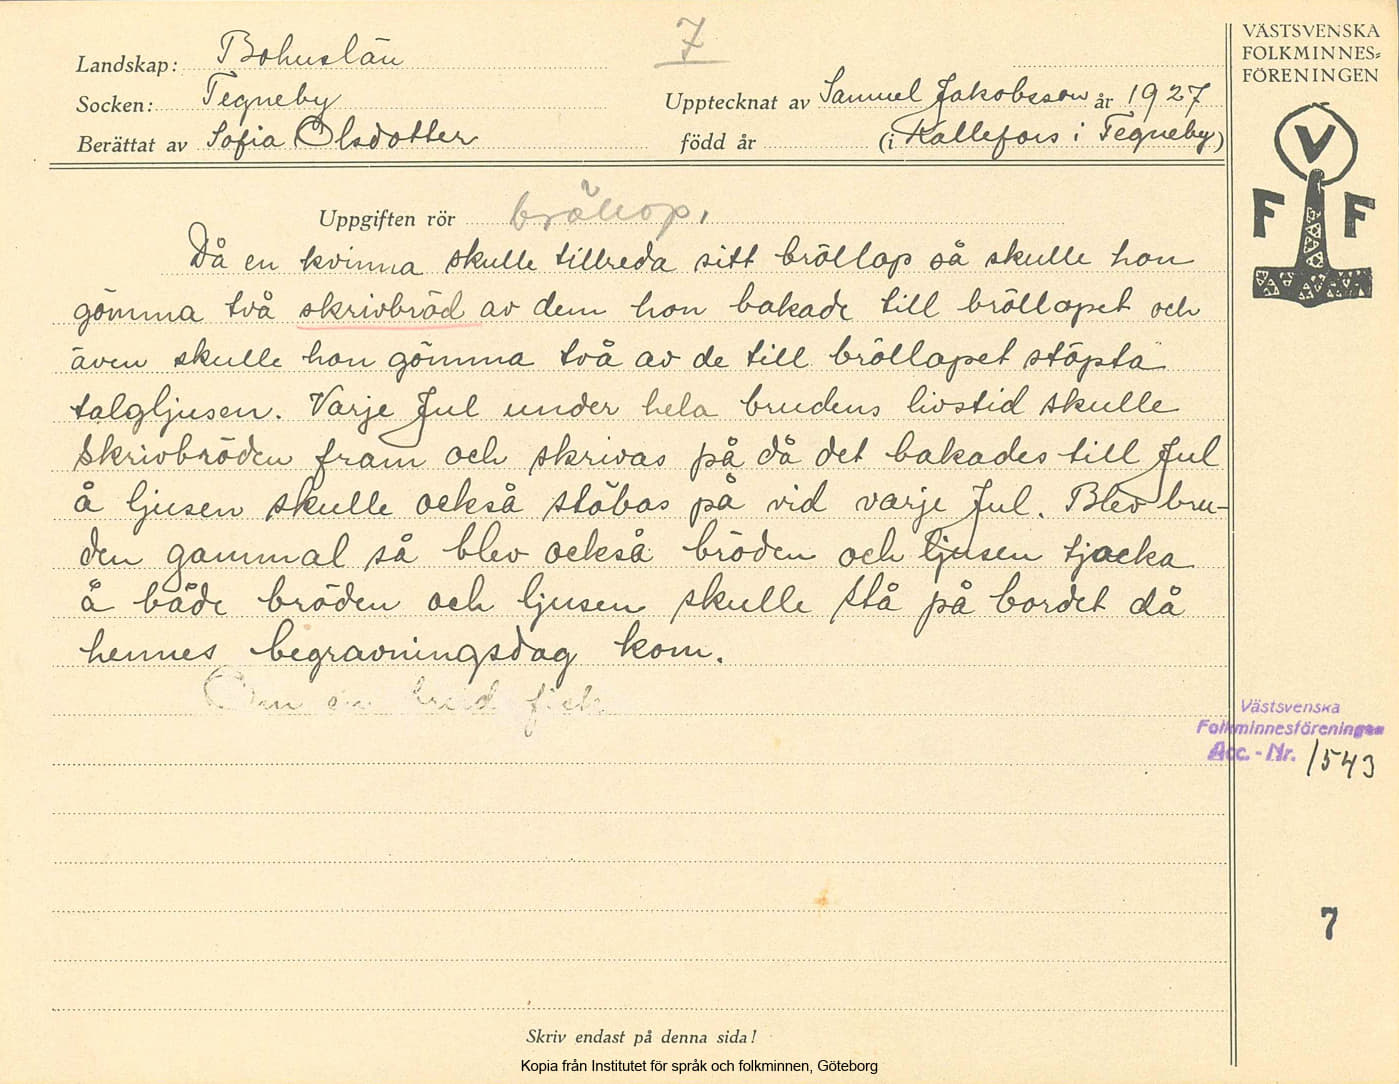 7
VÄSTSVENSKA
FOLKMINNES=
FÖRENINGEN
Landskap: Bohuslän
Socken: Tegneby
Upptecknat av Samuel Jakobsson år 1927
Berättat av Sofia Olsdotter
född år (i Kallefors i Tegneby)
V
F F
Uppgiften rör bröllop.
Då en kvinna skulle tillreda sitt bröllop så skulle hon
gömma två skrivbröd av dem hon bakade till bröllopet och
även skulle hon gömma två av de till bröllopet stöpta
talgljusen. Varje Jul under hela brudens livstid skulle
skrivbröden fram och skrivas på då det bakades till Jul
å ljusen skulle också stöbas på vid varje Jul. Blev bru-
den gammal så blev också bröden och ljusen tjocka
å både bröden och ljusen skulle stå på bordet då
hennes begravningsdag kom.
Om en brud fick
Västsvenska
Folkminnesföreningen
Acc. - Nr. 1543
7
Skriv endast på denna sida!
Kopia från Institutet för språk och folkminnen, Göteborg